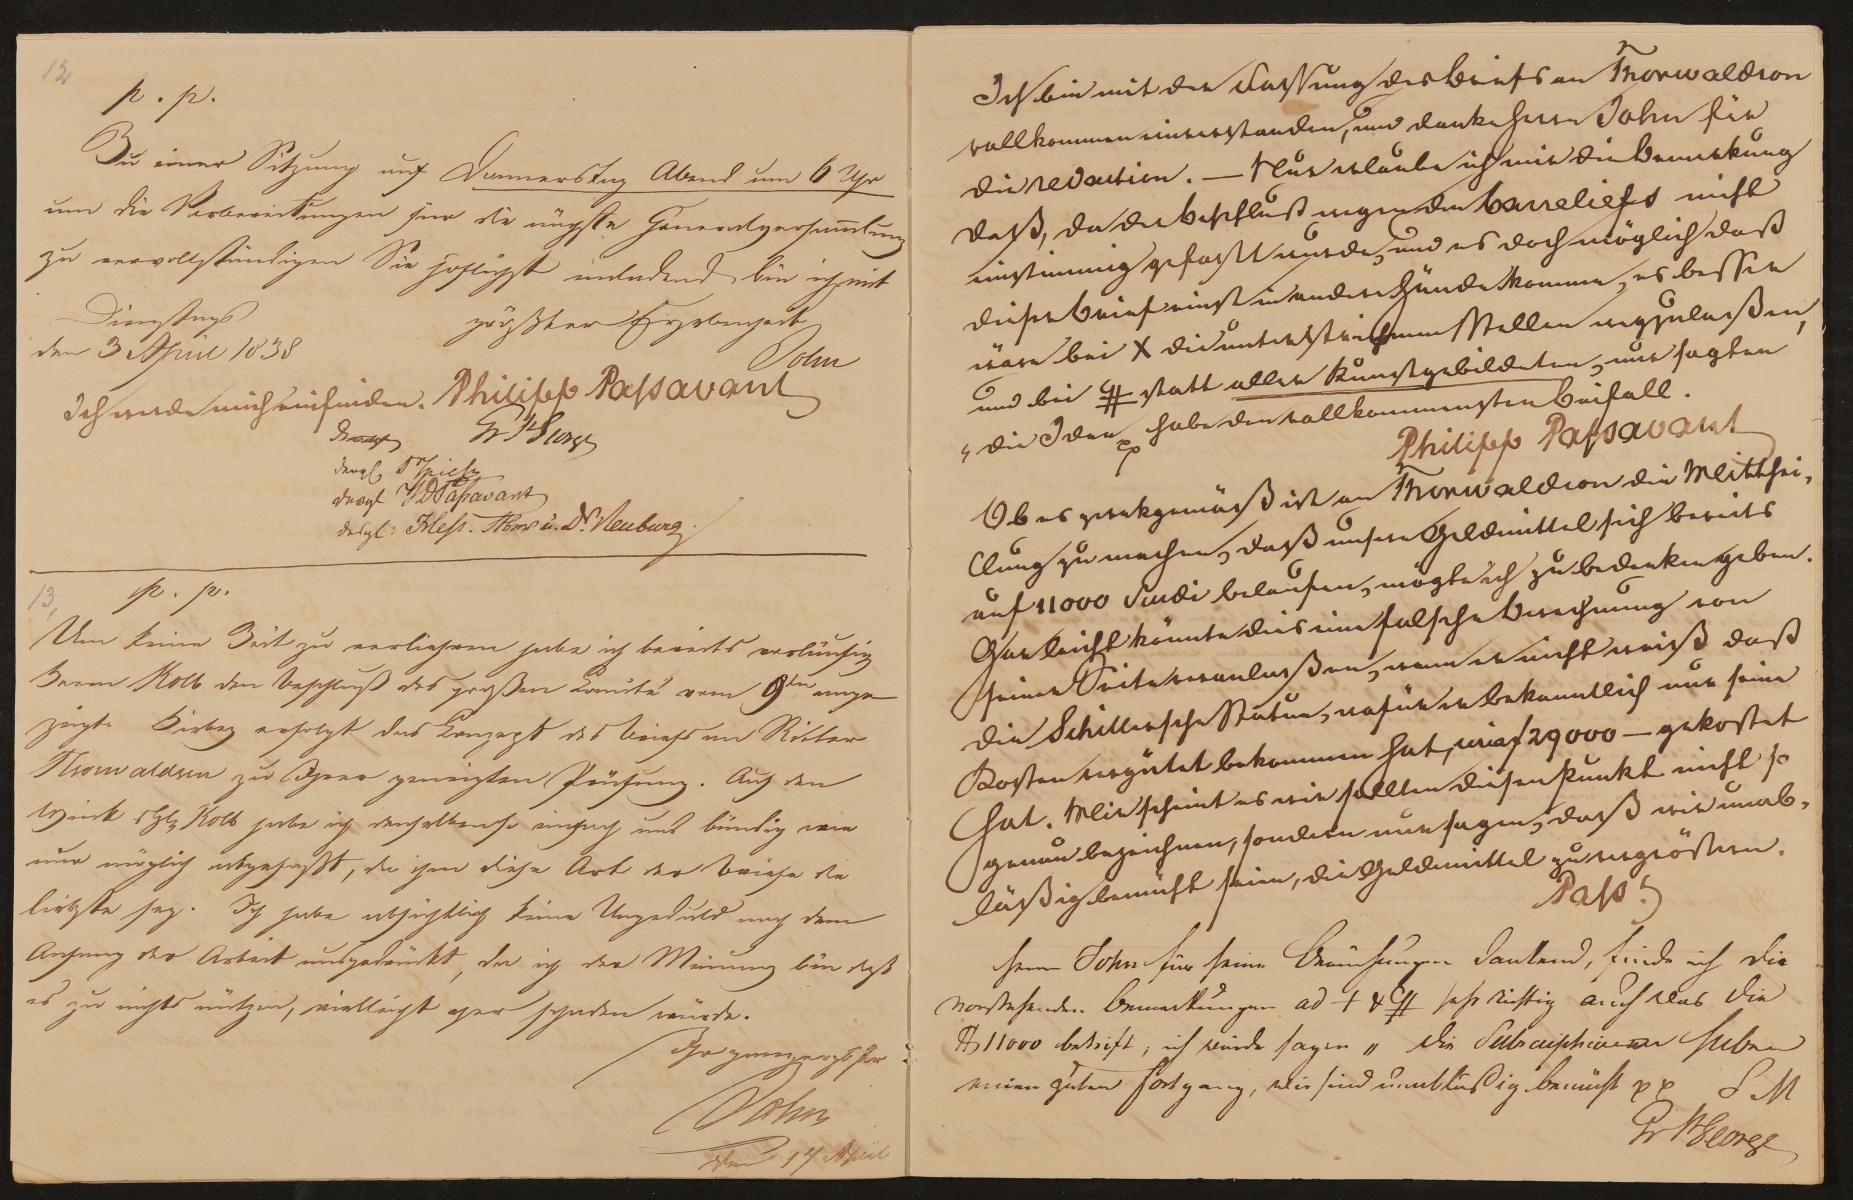 12
p. p.
Zu einer Sitzung auf Donnerstag Abend um 6 Uhr
um die Vorbereitungen für die nächste Generalversammlung
zu vervollständigen Sie höflichst einladend bin ich mit
Dienstags größter Ergebenheit
den 3 April 1838 John
Ich werde mich einfinden. Philipp Passavant
Fr StGeorge
dergl Spiess
dergl Passavant
desgl: Hess. u. Dr. Neuburg.
13,
p. p.
Um keine Zeit zu verliehren habe ich bereits vorläufig
Herrn Kolb den Beschluß des großen Comité vom 9ten ange
zeigt. Hierbey erfolgt das Conzept des Briefs an Ritter
Thorwaldsen zu Ihrer geneigten Prüfung. Auf den
Wink Kolb habe ich denselben so einfach und bündig wie
nur möglich abgefaßt, da ihm diese Art der Briefe die
liebste sey. Ich habe absichtlich keine Ungeduld nach dem
Anfang der Arbeit ausgedrückt, da ich der Meinung bin daß
es zu nichts nützen, vielleicht eher schaden würde.
Ihr ganz ergebster
John
den 17 April
Ich bin mit der Fassung des Briefs an Thorwaldson
vollkommen einverstanden, und danke Herrn John für
die redaction. — Nur erlaube ich mir die Bemerkung
daß, da der Beschluß wegen den basreliefs nicht
einstimmig gefasst wurde, und es doch möglich daß
dieser Brief einst in andere Hände komme, es besser
wäre bei X die unterstrichenen Stellen wegzulaßen,
und bei # statt aller Kunstgebildeten, nur sagten
„ die Idee p habe den vollkommensten Beifall.
Philipp Passavant
Ob es zwekgemäß ist an Thorwaldson die Mitthei-
lung zu machen, daß unsere Geldmittel sich bereits
auf 11000 Scudi belaufen, mögte ich zu bedenken geben.
Gar leicht könnte dies eine falsche Berechnung von
seiner Seite veranlaßen, wenn er nicht weiß daß
die Schillersche Statue, wofür er bekanntlich nur seine
Kosten vergütet bekommen hat, circa f 29000 — gekostet
hat. Mir scheint es wir sollten diesen Punkt nicht so
genau bezeichnen, sondern nur sagen, daß wir unab-
läßig bemüht seien, die Geldmittel zu vergrössern.
Pass.
Herrn John für seine Bemühungen dankend, finde ich die
vorstehenden Bemerkungen ad + & # sehr richtig auch was die
11000 betrift, ich würde sagen „ die Subscriptionen haben
einen guten Fortgang, wir sind unabläßig bemüht pp S M
Fr StGeorge